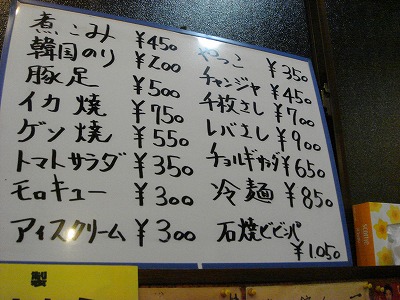 煮こみ ¥450
韓国のり ¥200
豚足 ¥500
イカ焼 ¥750
ゲソ焼 ¥550
トマトサラダ ¥350
モロキュー ¥300
アイスクリーム ¥300
やっこ ¥350
チャンジャ ¥450
千枚さし ¥700
レバさし ¥900
チョルギサラダ ¥650
冷麺 ¥850
石焼ビビンバ ¥1,050
製